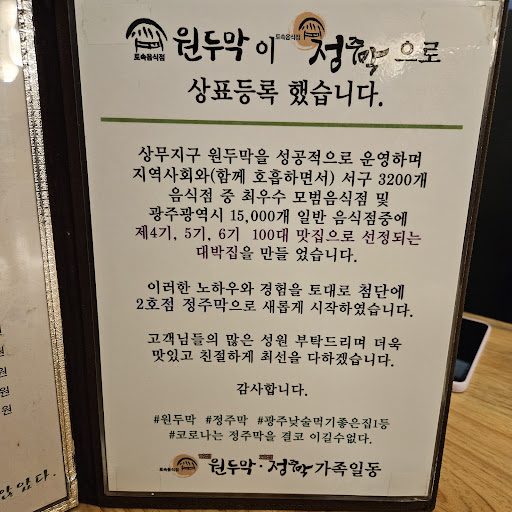 토속음식점 원두막 이 토속음식점 정주막 으로
상표등록 했습니다.
상무지구 원두막을 성공적으로 운영하며
지역사회와(함께 호흡하면서) 서구 3200개
음식점 중 최우수 모범음식점 및
광주광역시 15,000개 일반 음식점중에
제4기, 5기, 6기 100대 맛집으로 선정되는
대박집을 만들 었습니다.
이러한 노하우와 경험을 토대로 첨단에
2호점 정주막으로 새롭게 시작하였습니다.
고객님들의 많은 성원 부탁드리며 더욱
맛있고 친절하게 최선을 다하겠습니다.
감사합니다.
#원두막 #정주막 #광주낮술먹기좋은집1등
#코로나는 정주막을 결코 이길수없다.
토속음식점 원두막·정주막 가족일동
원
원
원
원